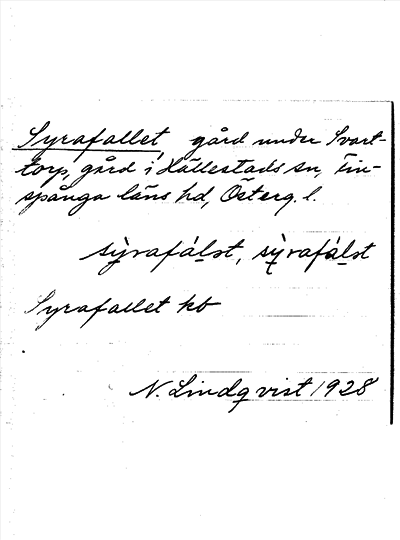 Syrafallet, gård under Svart-
torp, gård i Hällestads sn, Fin-
spånga läns hd, Österg. l.
sỳrafálst, sỳrafálst
Syrafallet kb
N. Lindqvist 1928